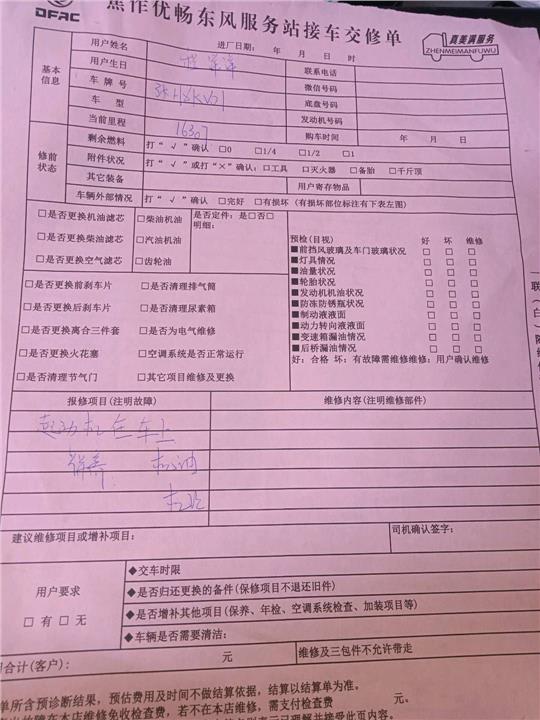 DFAC
焦作优畅东风服务站接车交修单
真美满服务
ZHENMEIMANFUWU
基本信息
用户姓名 进厂日期： 年 月 日 时
用户生日 联系电话
车牌号 微信号码
车型 底盘号码
当前里程 16307 发动机号码
购车时间 年 月 日
修前状态
剩余燃料 打“√”确认 □0 □1/4 □1/2 □1
附件状况 打“√”或打“×”确认：□工具 □灭火器 □备胎 □千斤顶
其它装备 用户寄存物品
车辆外部情况 打“√”确认 □完好 □有损坏（有损坏部位标注有下表左图）
□是否更换机油滤芯 □柴油机油 是否定件：是□否□
明细：
□是否更换柴油滤芯 □汽油机油
□是否更换空气滤芯 □齿轮油
□是否更换前刹车片 □是否清理排气筒
□是否更换后刹车片 □是否清理尿素箱
□是否更换离合三件套 □是否为电气维修
□是否更换火花塞 □空调系统是否正常运行
□是否清理节气门 □其它项目维修及更换
预检(目视) 好 坏 维修
■前挡风玻璃及车门玻璃状况 □ □ □
■灯具情况 □ □ □
■油量状况 □ □ □
■轮胎状况 □ □ □
■发动机机油状况 □ □ □
■防冻防锈瓶状况 □ □ □
■制动液液面 □ □ □
■动力转向液液面 □ □ □
■变速箱漏油情况 □ □ □
■后桥漏油情况 □ □ □
好：合格 坏：有故障需维修维修：用户确认维修
报修项目(注明故障) 维修内容(注明维修部件)
起动机在车上
保养 机油
机滤
建议维修项目或增补项目： 司机确认签字：
用户要求
□ 有 □ 无
◆交车时限
◆是否归还更换的备件(保修项目不退还旧件)
◆是否增补其他项目(保养、年检、空调系统检查、加装项目等)
◆车辆是否需要清洁：
合计(客户)： 元 维修及三包件不允许带走
单所含预诊断结果，预估费用及时间不做结算依据，结算以结算单为准。
故障在本店维修免收检查费，若不在本店维修，需支付检查费 元。